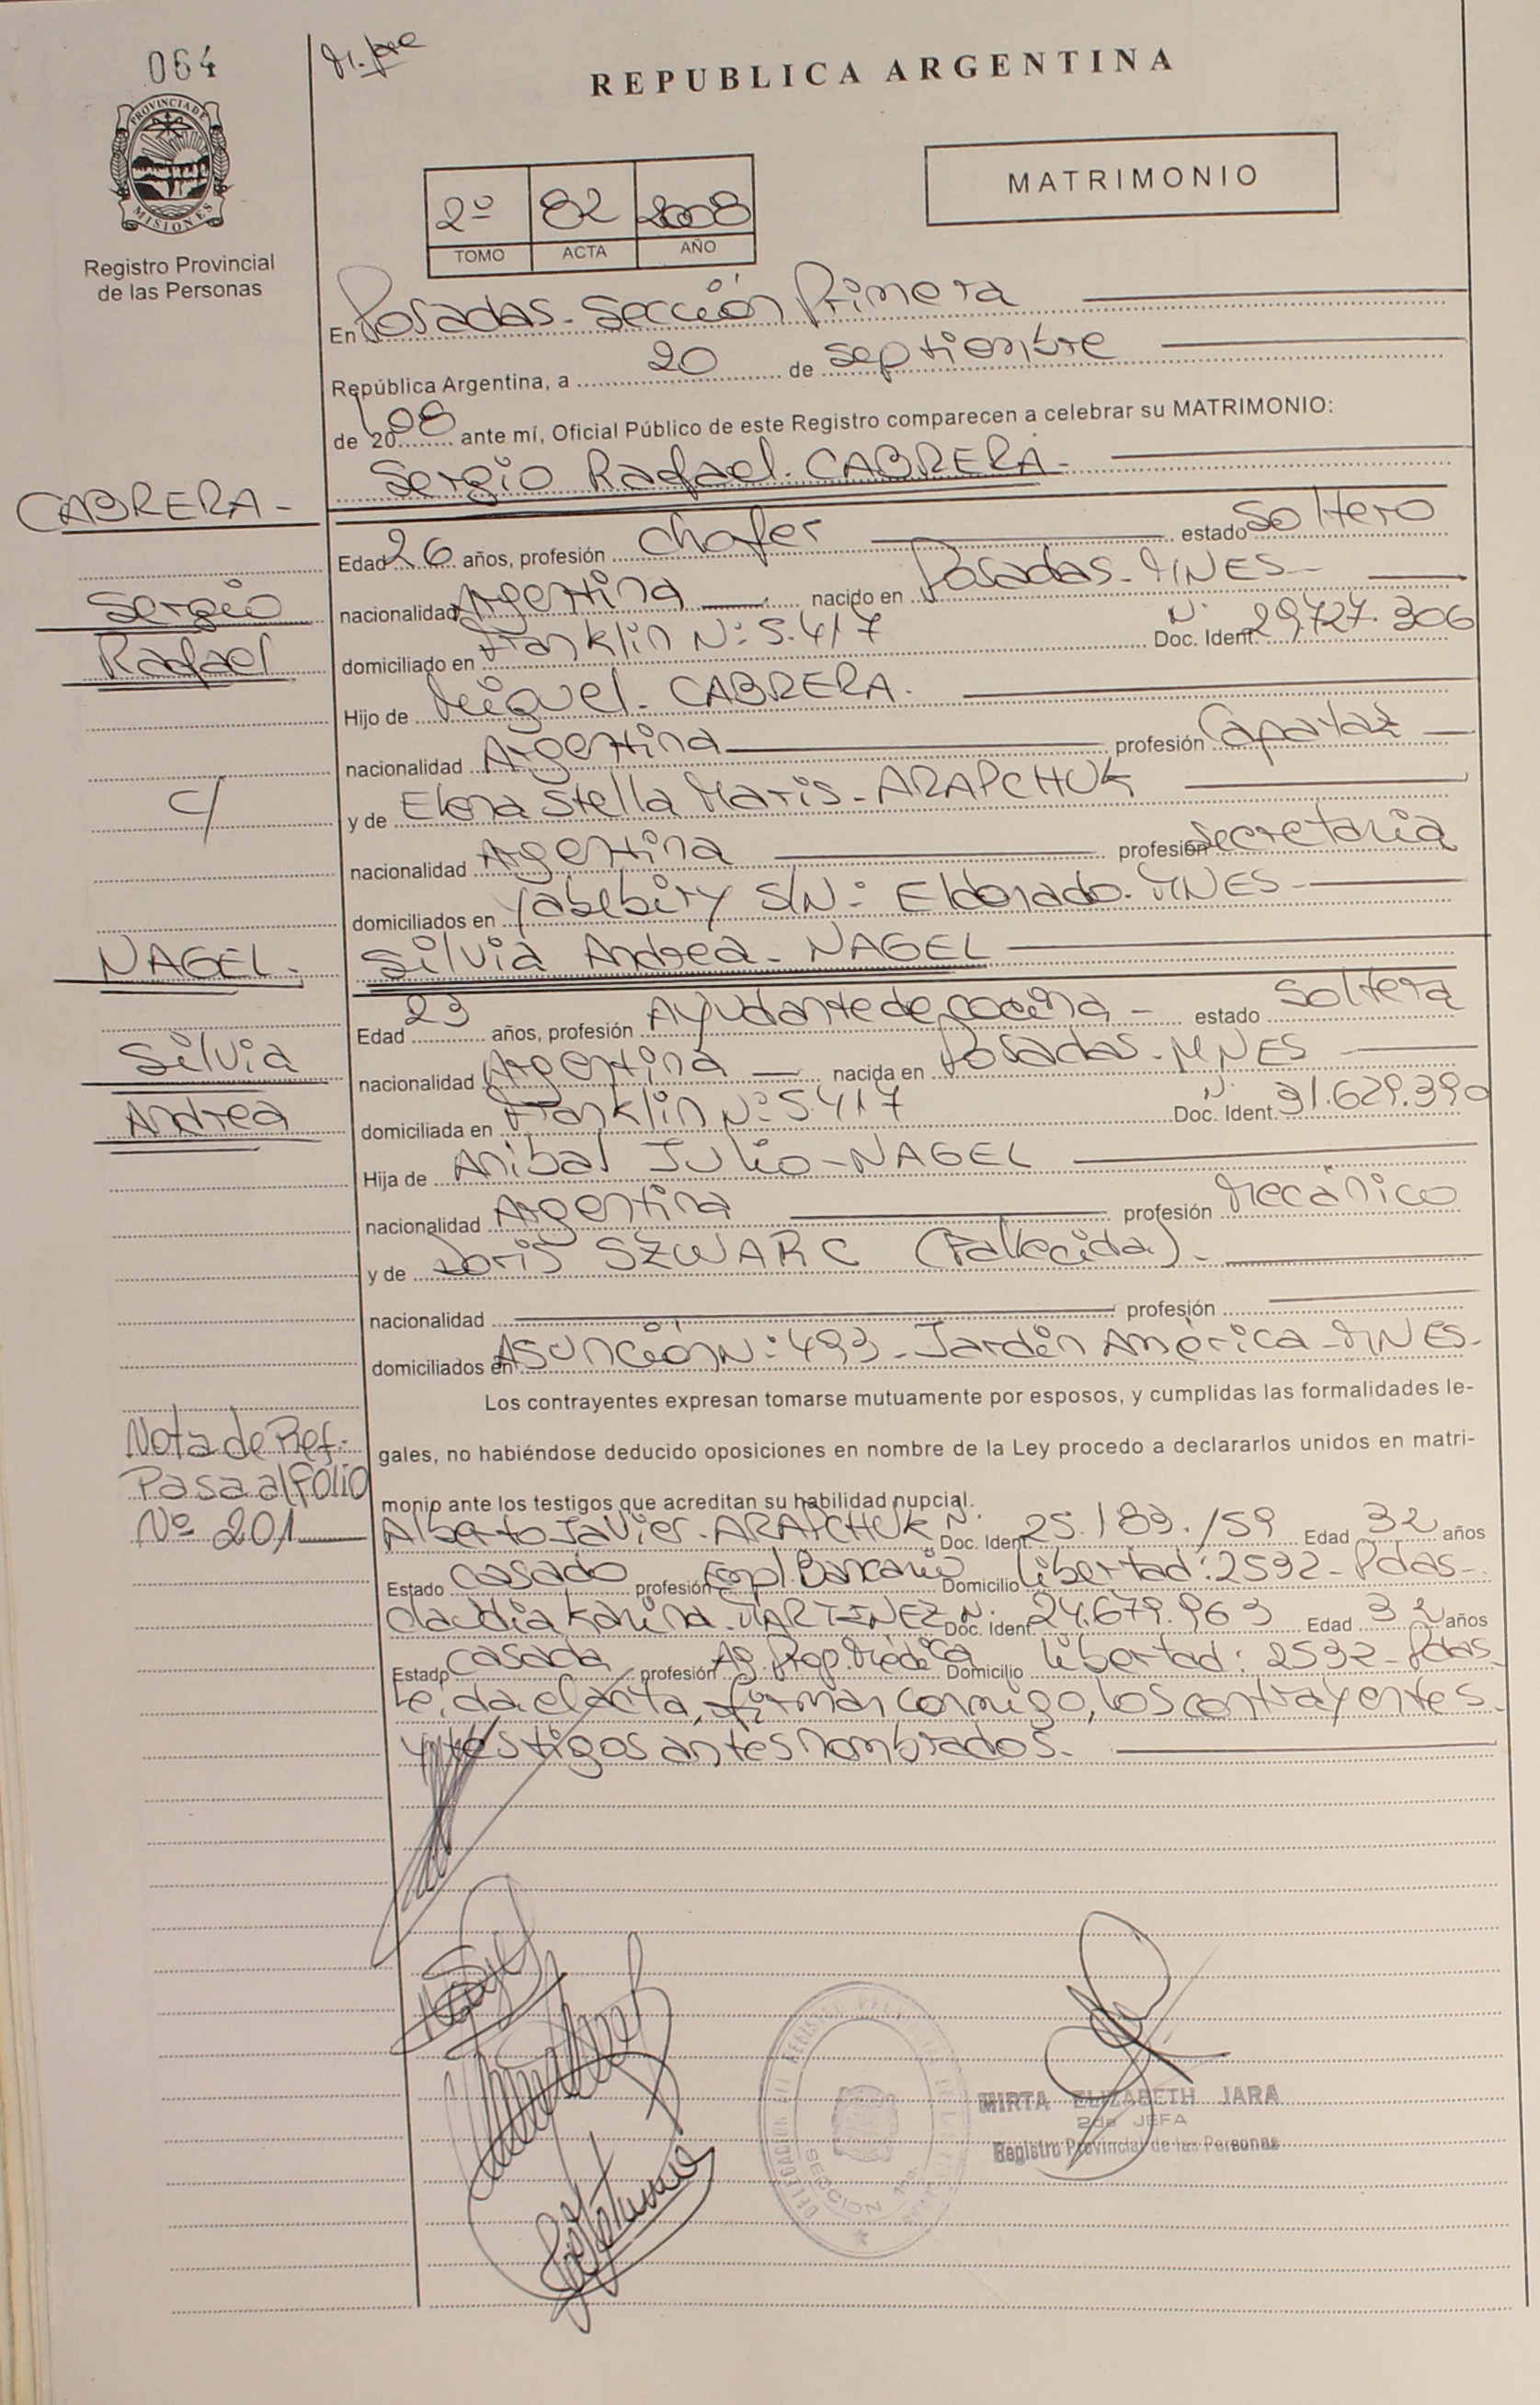 064
REPUBLICA ARGENTINA
PROVINCIA DE
MISIONES
Registro Provincial
de las Personas
MATRIMONIO
2º 82 2008
TOMO ACTA AÑO
En Posadas - Sección Primera
República Argentina, a 20 de septiembre
de 2008 ante mí, Oficial Público de este Registro comparecen a celebrar su MATRIMONIO:
Sergio Rafael - CABRERA -
CABRERA -
Edad 26 años, profesión chofer estado soltero
Sergio
nacionalidad Argentina nacido en Posadas - MNES -
Rafael
domiciliado en Franklin Nº 5.417 Doc. Ident. Nº 29.727.306
Hijo de Miguel - CABRERA -
nacionalidad Argentina profesión Capataz
c/
y de Elena Stella Maris - ARAPCHUK
nacionalidad Argentina profesión secretaria
domiciliados en Yabebiry S/Nº Eldorado - MNES -
NAGEL -
Silvia Andrea - NAGEL
Edad 23 años, profesión Ayudante de cocina - estado soltera
Silvia
nacionalidad Argentina nacida en Posadas - MNES
Andrea
domiciliada en Franklin Nº 5.417 Doc. Ident. Nº 31.629.390
Hija de Anibal Julio - NAGEL
nacionalidad Argentina profesión Mecánico
y de Doris SZWARC (Fallecida) -
nacionalidad profesión
domiciliados en Asunción Nº 493 - Jardín América - MNES -
Los contrayentes expresan tomarse mutuamente por esposos, y cumplidas las formalidades le-
gales, no habiéndose deducido oposiciones en nombre de la Ley procedo a declararlos unidos en matri-
monio ante los testigos que acreditan su habilidad nupcial.
Nota de Ref.-
Pasa al Folio
Nº 201
Alberto Javier - ARAPCHUK Doc. Ident. Nº 25.183.159 Edad 32 años
Estado casado profesión Empl. Bancario Domicilio Libertad: 2592 - Pdas -
Claudia Karina - MARTINEZ Doc. Ident. Nº 24.679.963 Edad 32 años
Estado casada profesión Ag. Prop. Médica Domicilio Libertad: 2592 - Pdas -
Leída el acta, firman conmigo, los contrayentes
y testigos antes nombrados -
MIRTA ELIZABETH JARA
2da JEFA
Registro Provincial de las Personas
SECCION 1ra.